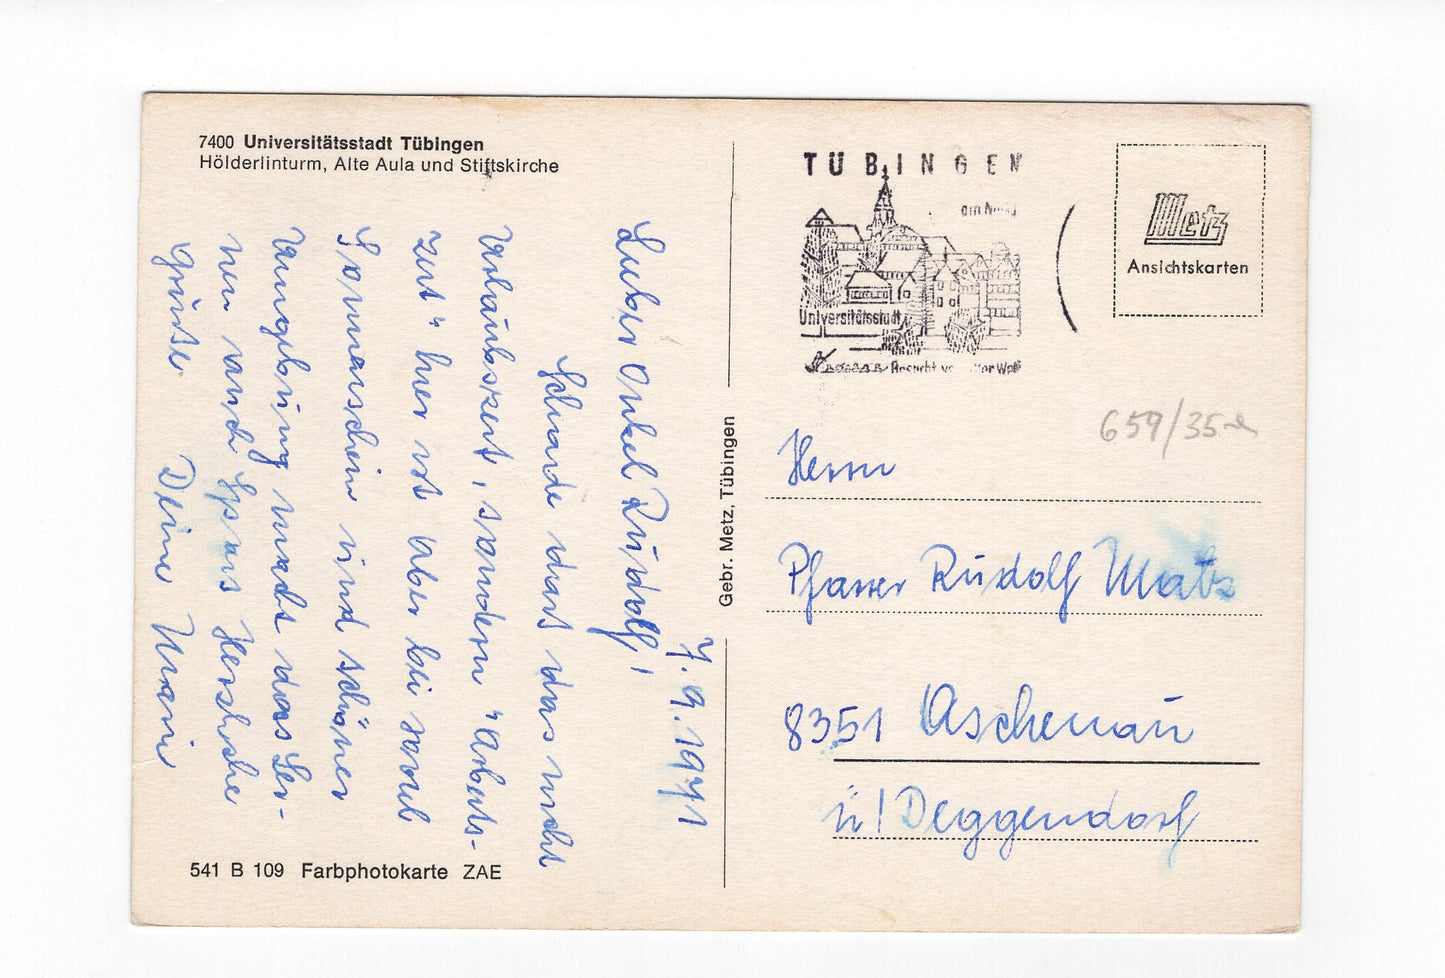 7400 Universitätsstadt Tübingen
Hölderlinturm, Alte Aula und Stiftskirche
7.9.1971
Lieber Onkel Rudolf!
Schade daß das nicht
Urlaubszeit, sondern "Arbeits-
zeit" hier ist. Aber bei soviel
Sonnenschein und schöner
Umgebung macht das Ler-
nen auch Spaß. Herzliche
Grüße
Deine
541 B 109 Farbphotokarte ZAE
Gebr. Metz, Tübingen
TÜBINGEN
am
Universitätsstadt
Besucht
Metz
Ansichtskarten
659/35
Herrn
Pfarrer Rudolf
8351 Aschenau
ü/ Deggendorf